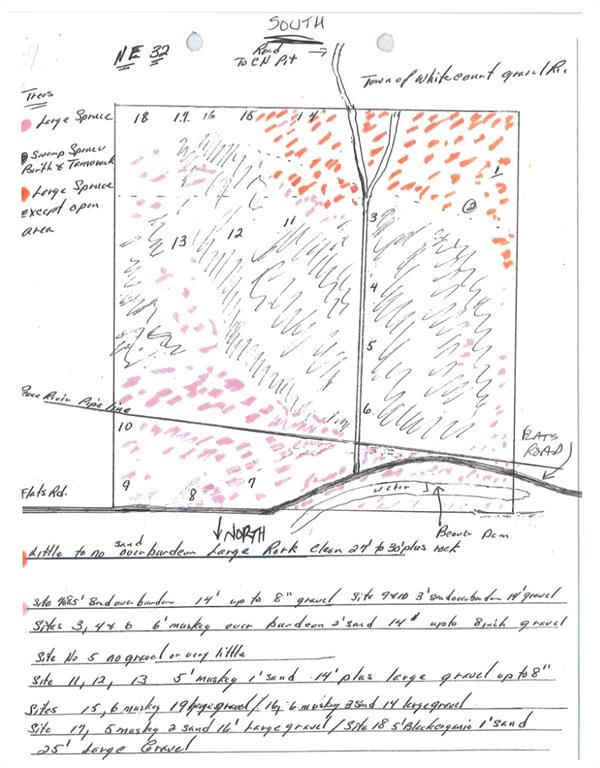 SOUTH
NE 32
Road
To CN Pit
Town of Whitecourt gravel
Trees
Large Spruce
Swamp Spruce
Birth & Tamorack
Large Spruce
except open
area
18 17 16 15 14
1
2
3
13 12 11
4
5
6
Pipe line
10
FLATS
ROAD
9 8 7
Flats Rd.
water
NORTH
Beaver Dam
sand
Little to no overburdem Large Rork Clean 27' to 30' plus rock
overburden 14' up to 8" gravel Site 9&10 3' sand overburden 14' gravel
Sites 3, 4 & 6 6' muskey over burdeen 2' sand 14" upto 8 inch gravel
Site No 5 no gravel or very little
Site 11, 12, 13 5' muskey 1' sand 14' plus large gravel up to 8"
Sites 15, 6 muskey 19 large gravel / 16, 6 muskey 2 sand 14 large gravel
Site 17, 5 muskey 2 sand 16' Large gravel / Site 18 5' Black organic 1' sand
25' Large Gravel